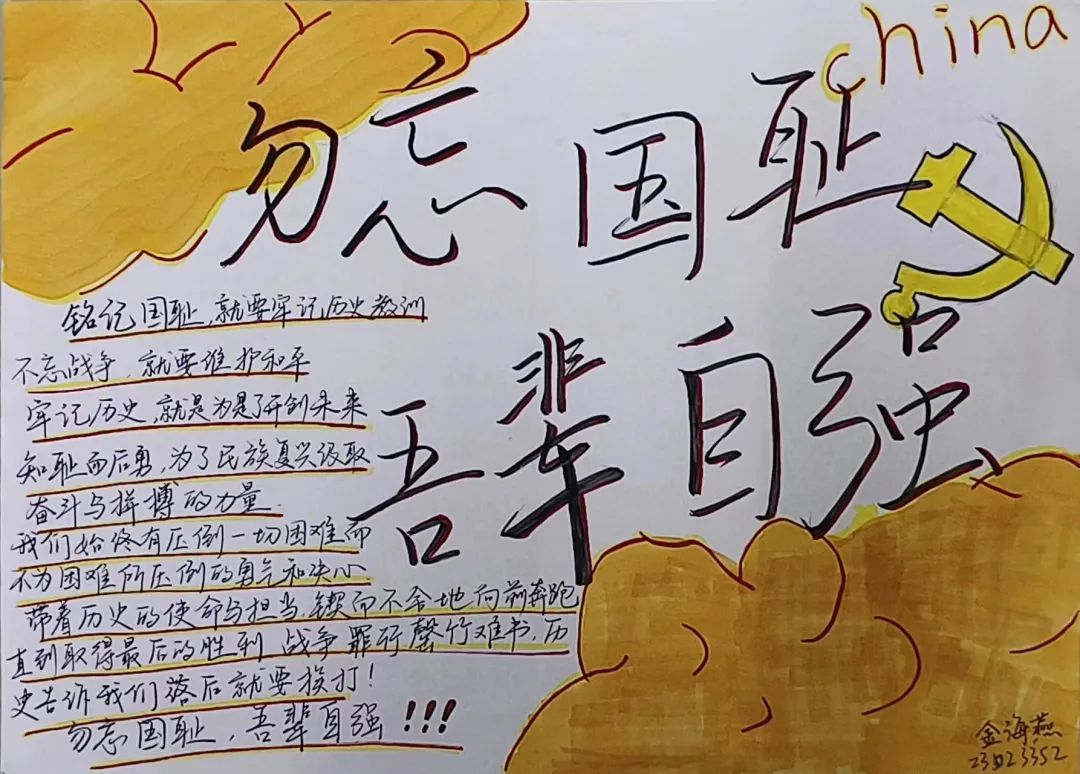 china
勿忘国耻
吾辈自强
铭记国耻,就要牢记历史教训
不忘战争,就要维护和平
牢记历史,就是为是了开创未来
知耻而后勇,为了民族复兴汲取
奋斗与拼搏的力量.
我们始终有压倒一切困难而
不为困难所压倒的勇气和决心
带着历史的使命与担当,锲而不舍地向前奔跑
直到取得最后的胜利 战争罪行罄竹难书,历
史告诉我们落后就要挨打!
勿忘国耻,吾辈自强!!!
金海燕
23023352